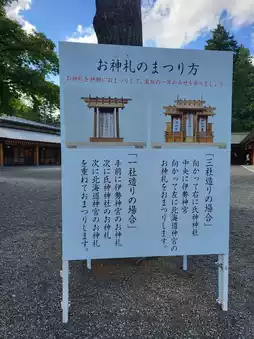 お神札のまつり方
お神札を神棚におまつりして、家族の一年が幸せでありますよう
「三社造りの場合」
向かって右に氏神神社
中央に伊勢神宮
向かって左に北海道神宮の
お神札をおまつりします。
「一社造りの場合」
手前に伊勢神宮のお神札
次に氏神神社のお神札
次に北海道神宮のお神札
を重ねておまつりします。